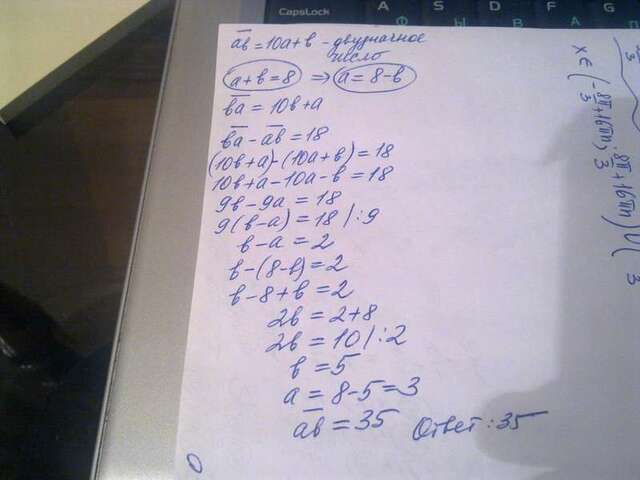 CapsLock
A S D F G
Ф Ы В А П
ab = 10a+b - двузначное
число
a+b=8 ⇒ a=8-b
ba = 10b+a
ba - ab = 18
(10b+a)-(10a+b)=18
10b+a-10a-b=18
9b-9a=18
9(b-a)=18 /:9
b-a=2
b-(8-b)=2
b-8+b=2
2b=2+8
2b=10 /:2
b=5
a=8-5=3
ab=35 Ответ: 35
x∈(-8π/3+16πn; 8π/3+16πn)∪(